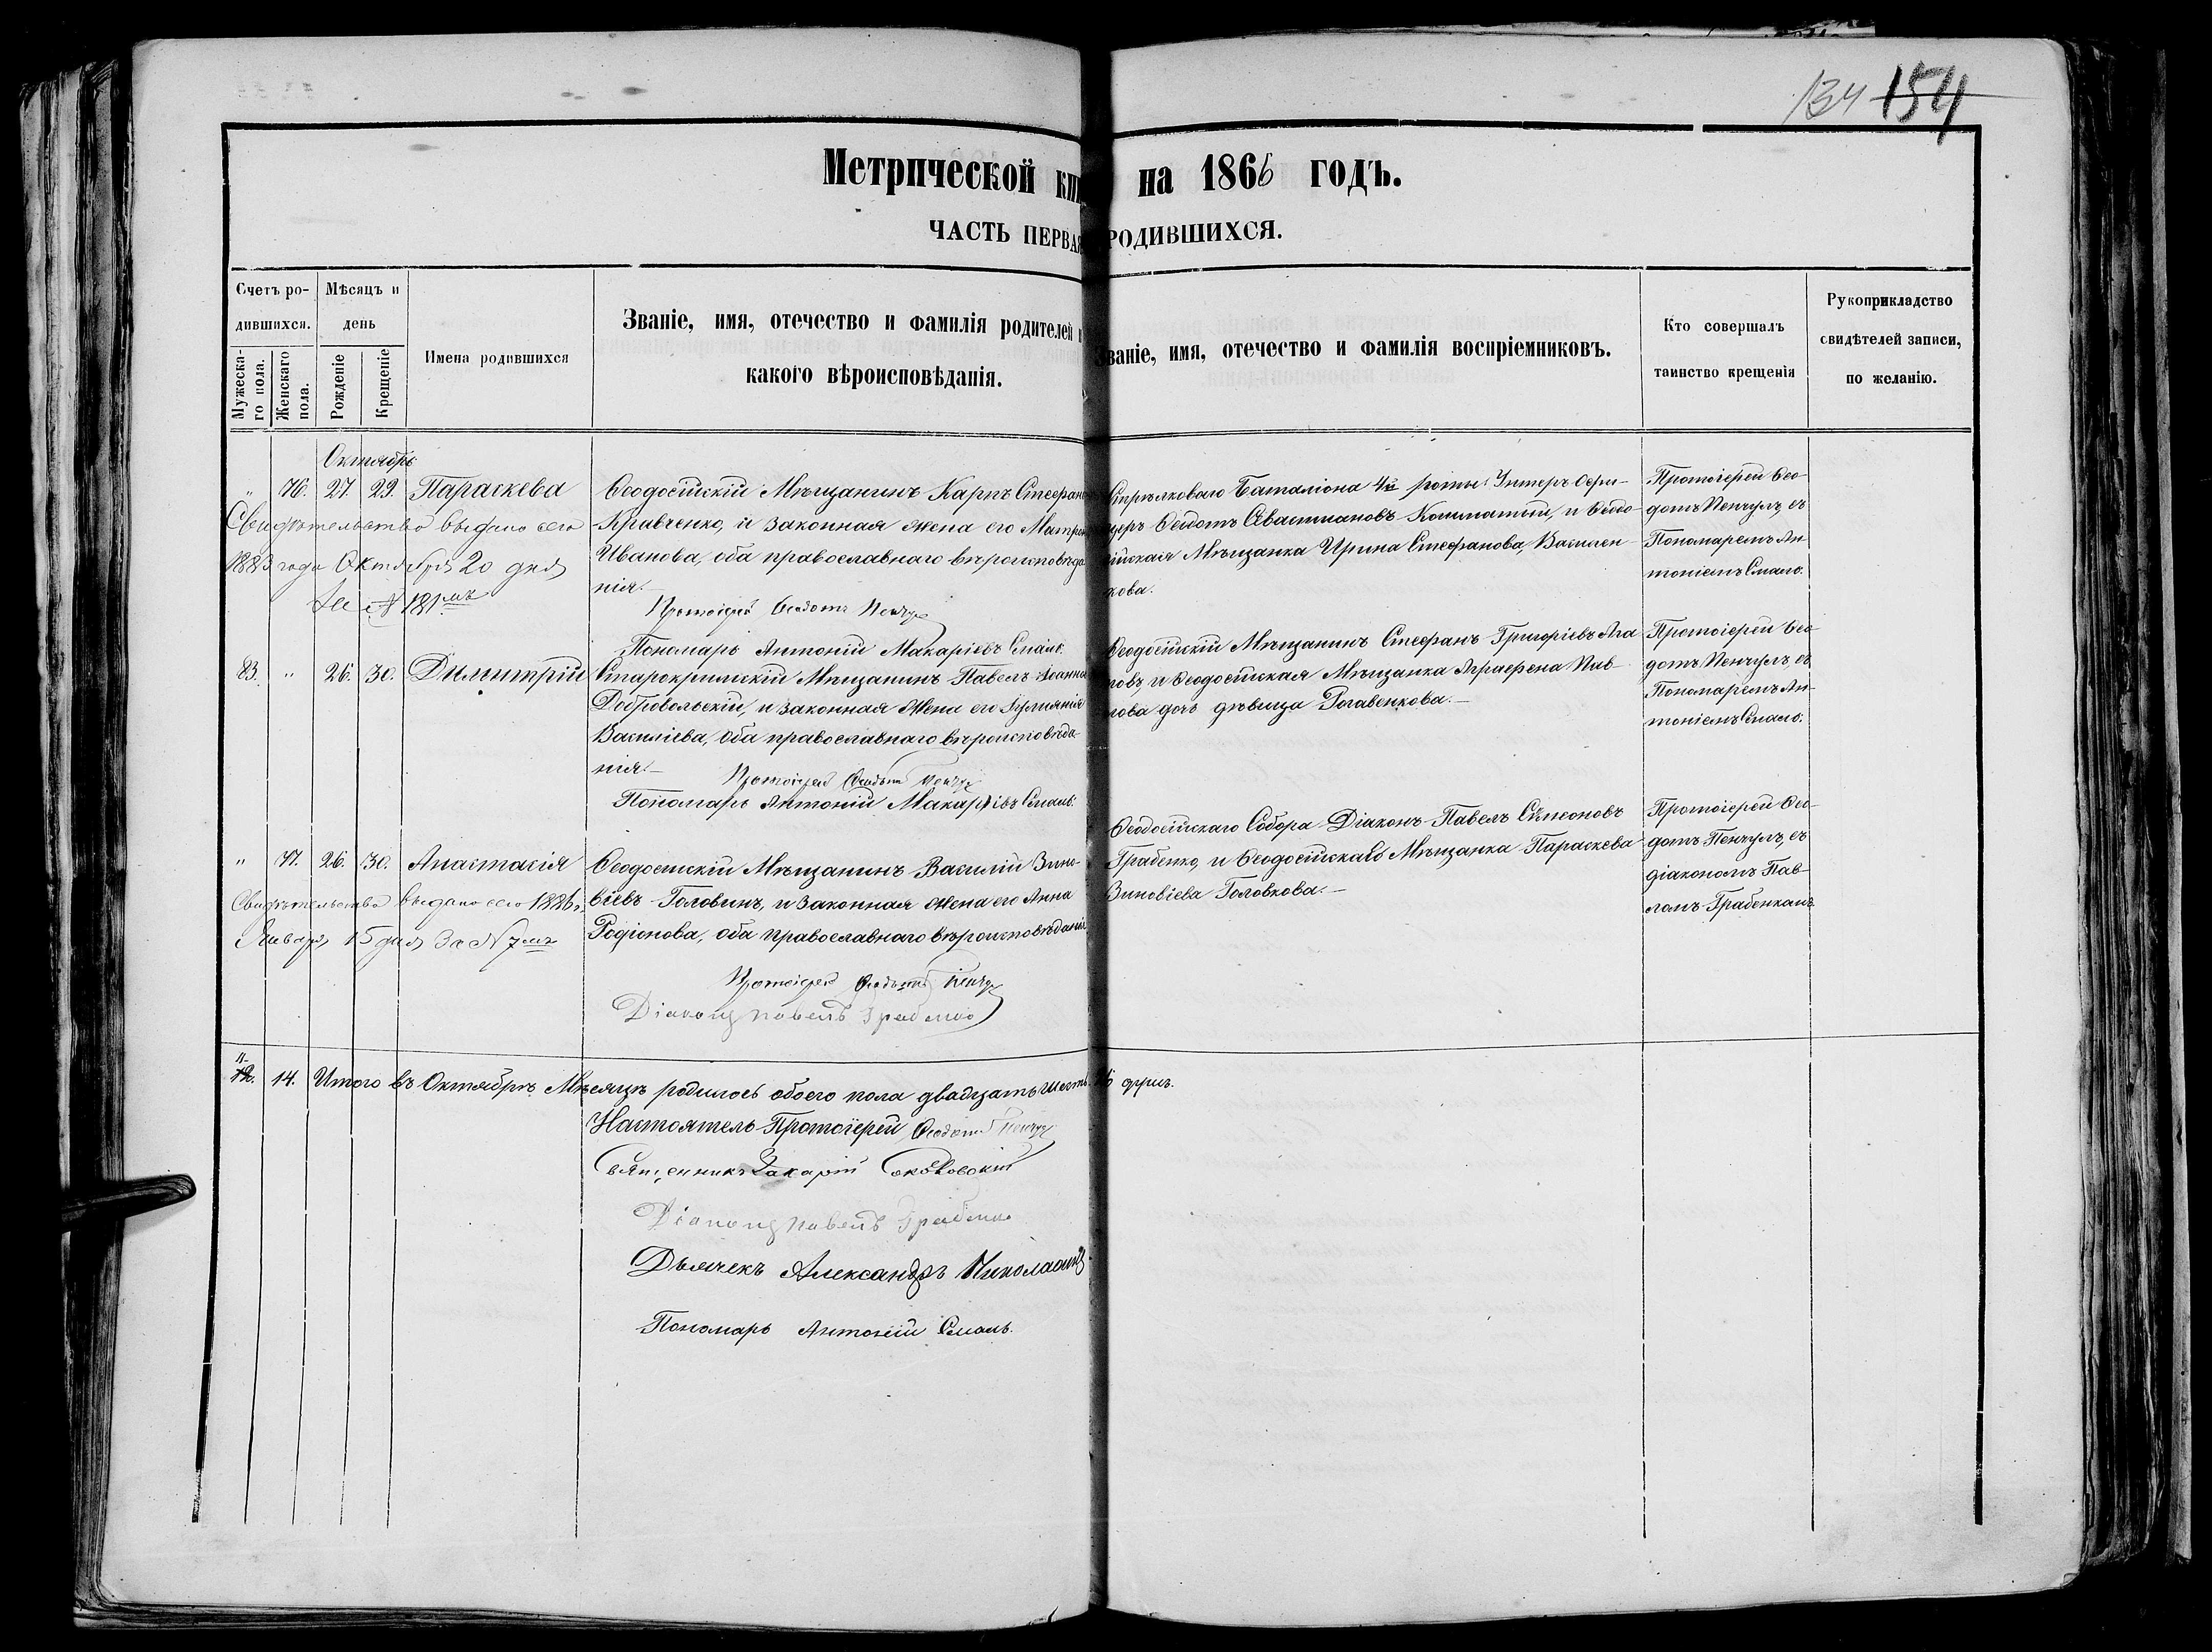 134 154
Метрической кни на 1866 годъ.
ЧАСТЬ ПЕРВАЯ РОДИВШИХСЯ.
Счетъ ро-
дившихся.
Мужеска-
го пола.
Женскаго
пола.
Мѣсяцъ и
день
Рожденіе
Крещеніе
Имена родившихся
Званіе, имя, отечество и фамилія родителей и
какого вѣроисповѣданія.
Званіе, имя, отечество и фамилія воспріемниковъ.
Кто совершалъ
таинство крещенія
Рукоприкладство
свидѣтелей записи,
по желанію.
Октябрь
" 76. 27. 29. Параскева
Свидѣтельство выдано сего
1883 года Октября 20 дня
за № 181мъ
Ѳеодосійскій Мѣщанинъ Карпъ Стефано
Кравченко, и законная жена его Матрон
Иванова, оба православнаго вѣроисповѣда
нія.
Протоіерей Ѳеодотъ Пенчулъ
Пономарь Антоній Макаріевъ Смаль.
Стрѣлковаго Баталіона 4й роты Унтеръ Офи-
церъ Ѳеодотъ Севастіановъ и Ѳеодо-
сійская Мѣщанка Ирина Стефанова Василен-
кова.
Протоіерей Ѳео-
дотъ Пенчулъ, съ
Пономаремъ Ан-
тоніемъ Смаль.
83. " 26. 30. Димитрій
Старокримскій Мѣщанинъ Павелъ Іоанно
Добровольскій, и законная жена его Іуліянія
Василіева, оба православнаго вѣроисповѣда-
нія.
Протоіерей Ѳеодотъ Пенчулъ
Пономарь Антоній Макаріевъ Смаль.
Ѳеодосійскій Мѣщанинъ Стефанъ Григоріевъ Ага
повъ, и Ѳеодосійская Мѣщанка Аграфена Пав-
лова дочь дѣвица Рогавенкова.
Протоіерей Ѳео-
дотъ Пенчулъ, съ
Пономаремъ Ан-
тоніемъ Смаль.
" 77. 26. 30. Анастасія
Свидѣтельство выдано сего 1886 г.
Января 15 дня за № 7мъ
Ѳеодосійскій Мѣщанинъ Василій Зино-
віевъ Головинъ, и законная жена его Анна
Родіонова, оба православнаго вѣроисповѣданія
Протоіерей Ѳеодотъ Пенчулъ
Діаконъ Павелъ Грабенко
Ѳеодосійскаго Собора Діаконъ Павелъ Сѵмеоновъ
Грабенко, и Ѳеодосійская Мѣщанка Параскева
Зиновіева Головкова.
Протоіерей Ѳео-
дотъ Пенчулъ, съ
діакономъ Пав-
ломъ Грабенкомъ
11
12. 14. Итого въ Октябрѣ Мѣсяцѣ родилось обоего пола двадцать шесть 26 душъ.
Настоятель Протоіерей Ѳеодотъ Пенчулъ
Священникъ Захарій Соковскій
Діаконъ Павелъ Грабенко
Дьячекъ Александръ
Пономарь Антоній Смаль.